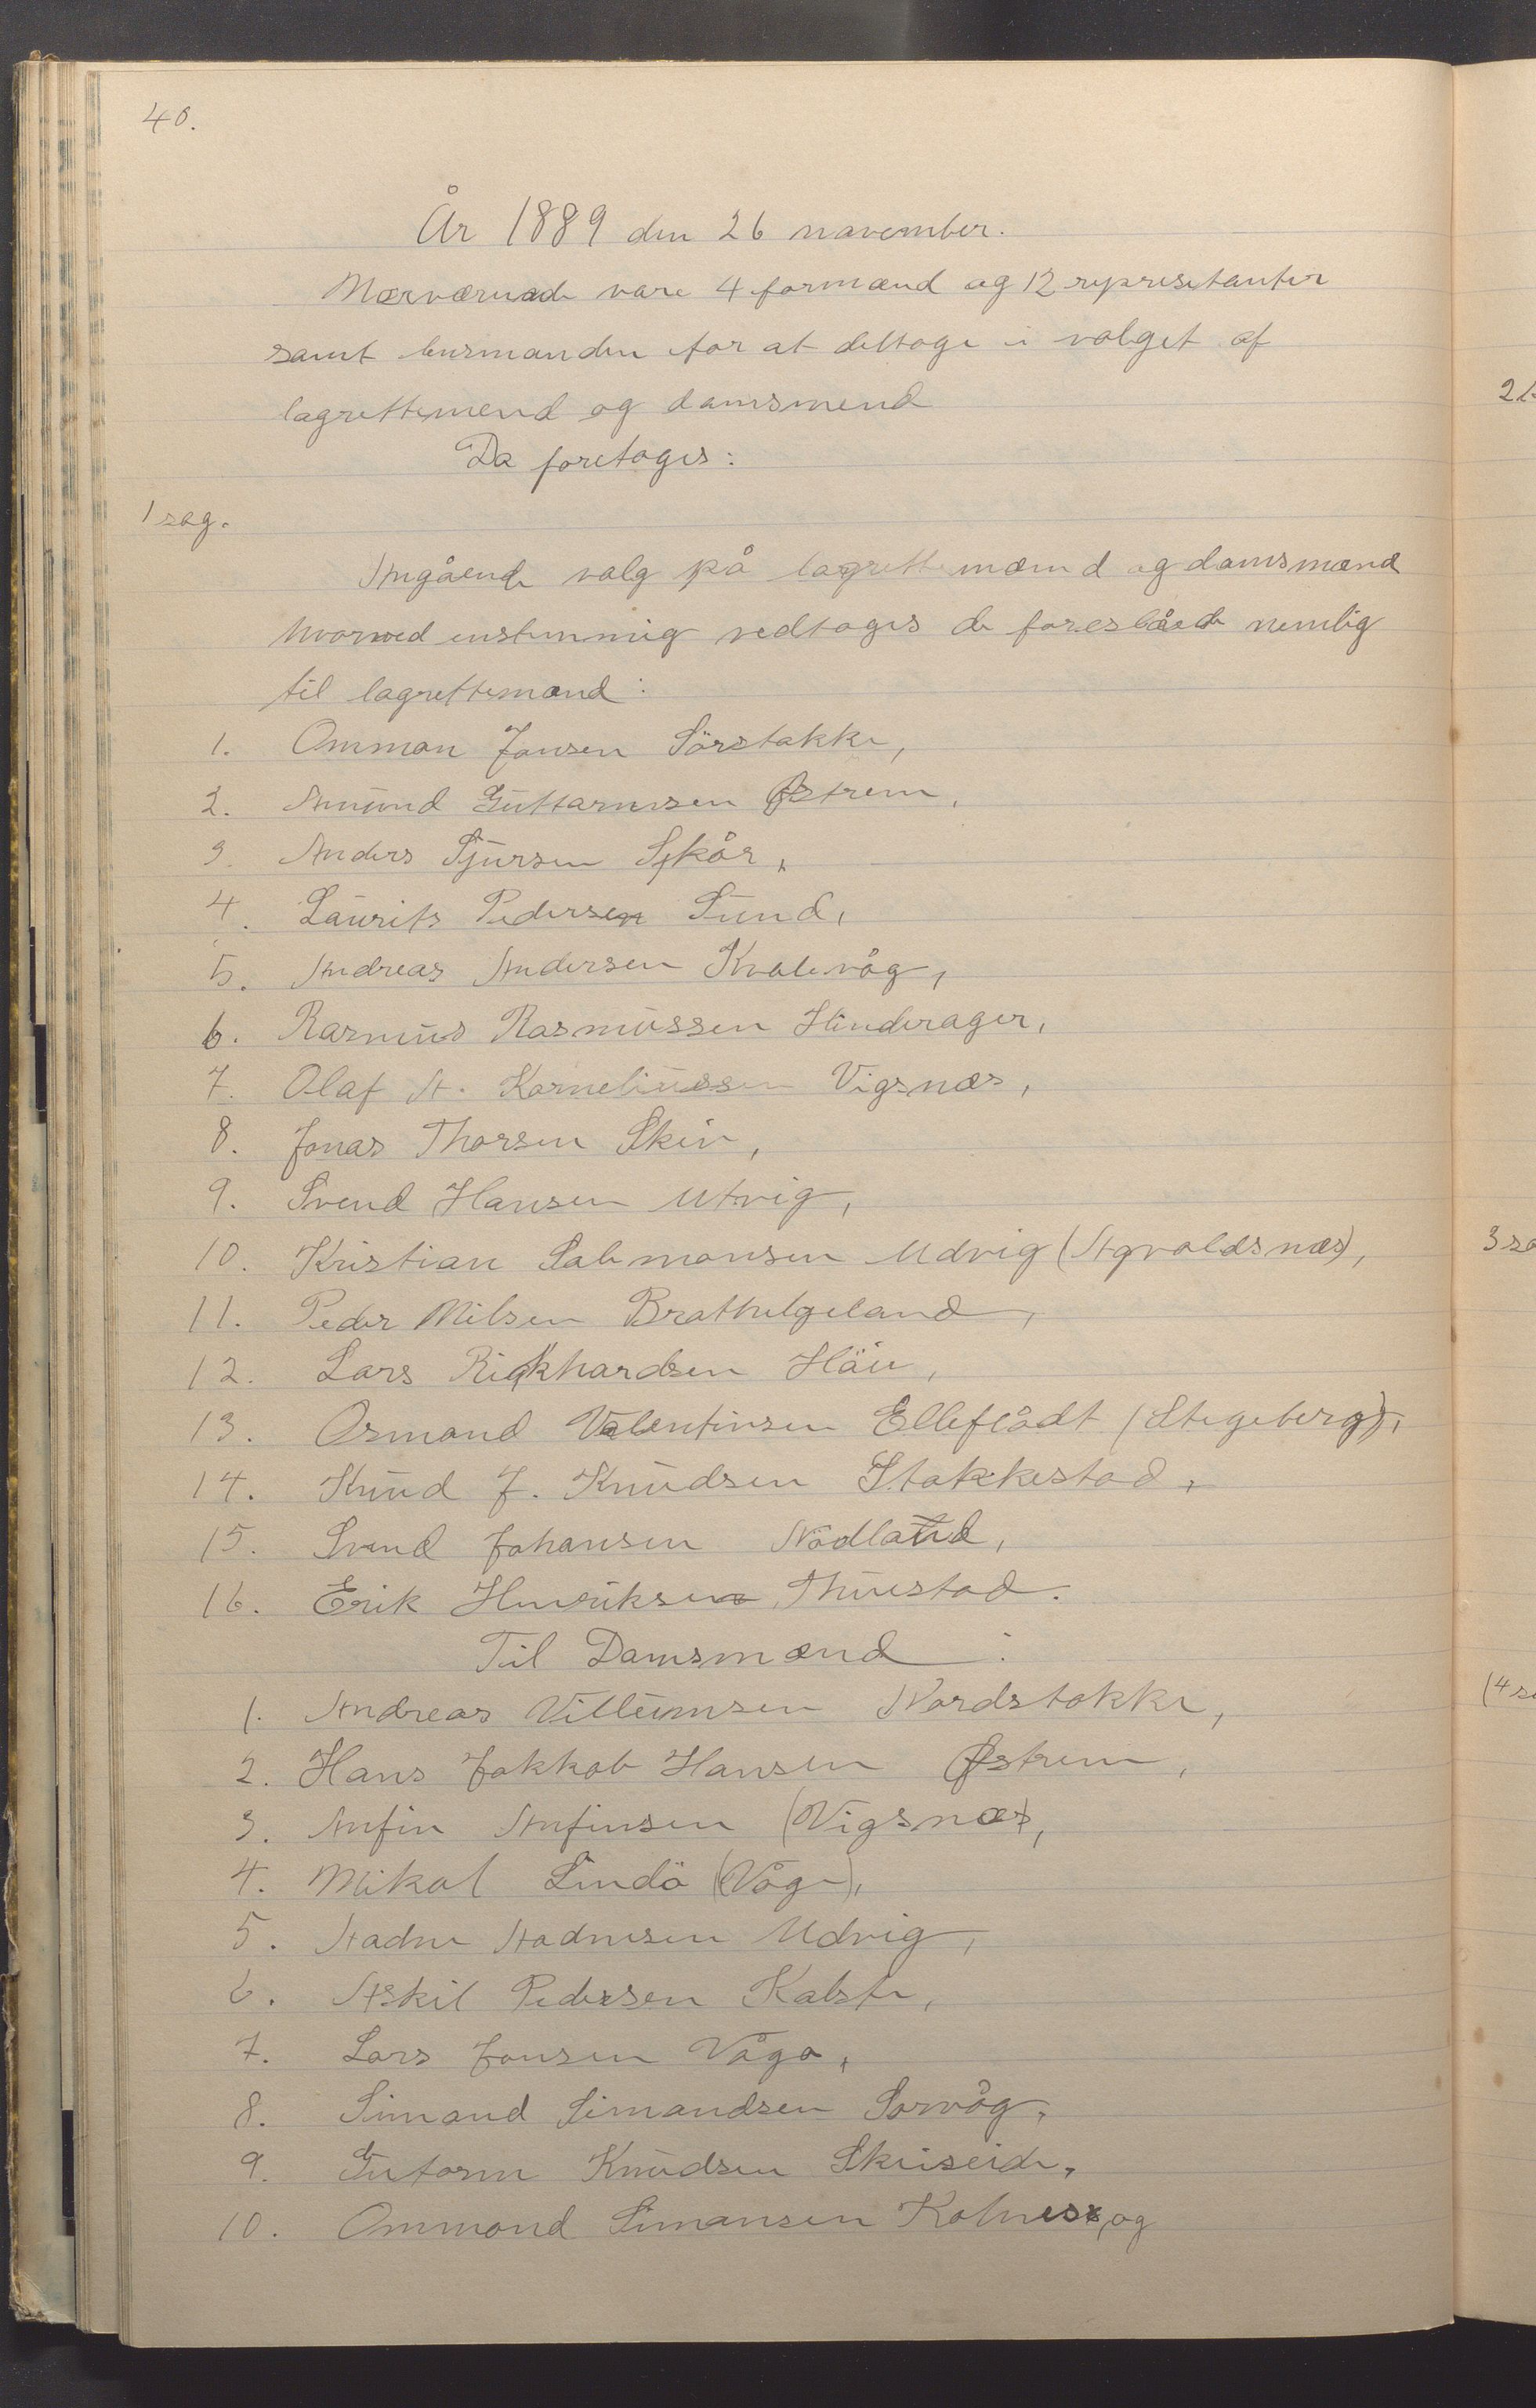 40.
År 1889 den 26 november.
Nærværende vare 4 formænd og 12 represetanter
samt lensmanden for at deltage i valget af
lagrettemend og domsmend
Da foretoges:
1 sag.
Angående valg på lagrettemænd og domsmænd
hvorved enstemmig vedtoges de foreslåede nemlig
til lagrettemænd:
1. Omman Jonsen Sörstakke,
2. Amund Guttormsen Østrem,
3. Anders Sjursen Skår,
4. Laurits Pedersen Sund,
5. Andreas Andersen Kvalevåg,
6. Rasmus Rasmussen Hinderager,
7. Olaf A. Korneliussen Vigsnæs,
8. Jonas Thorsen Skin,
9. Svend Hansen Utvig,
10. Kristian Salmonsen Udvig (Agvaldsnæs),
11. Peder Nilsen Brathelgeland,
12. Lars Rickhardsen Häu,
13. Osmond Valentinsen Elleflådt (Stegeberg),
14. Knud J. Knudsen Stakkestad,
15. Svend Johansen Nödland,
16. Erik Henriksen Thuestad.
Til Domsmænd :
1. Andreas Villumsen Nordstokke,
2. Hans Jakkob Hansen Østrem,
3. Anfin Anfinsen (Vigsnæs),
4. Mikal Lindö (Våge),
5. Aadne Aadnesen Udvig,
6. Askil Pedersen Kalstø,
7. Lars Jonsen Våga,
8. Simond Simondsen Sørvåg,
9. Gutorm Knudsen Skeiseide,
10. Ommond Simonsen Kolnes, og
2
3 sa
4 sa